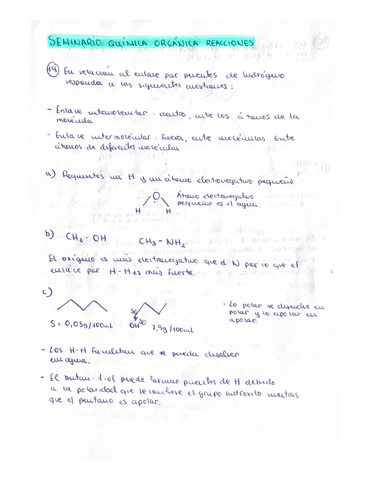 SEMINARIO QUÍMICA ORGÁNICA REACCIONES
14 En relación al enlace por puentes de hidrógeno
responda a las siguientes cuestiones:
- Enlace intramolecular: dentro, entre los átomos de la
molécula
- Enlace intermolecular: fuera, entre moléculas. Entre
átomos de diferentes moléculas
a) Requisitos un H y un átomo electronegativo pequeño
O
H H
Átomo electronegativo
pequeño es el agua.
b) CH3-OH CH3-NH2
El oxígeno es más electronegativo que el N por lo que el
enlace por H-H es más fuerte.
c)
S = 0,03g/100mL
OH 7,9g/100mL
- Lo polar se disuelve en
polar y lo apolar en
apolar.
- Los H-H facilitan que se pueda disolver
en agua.
- El butan-1-ol puede formar puentes de H debido
a la polaridad que le confiere el grupo hidroxilo mientras
que el pentano es apolar.